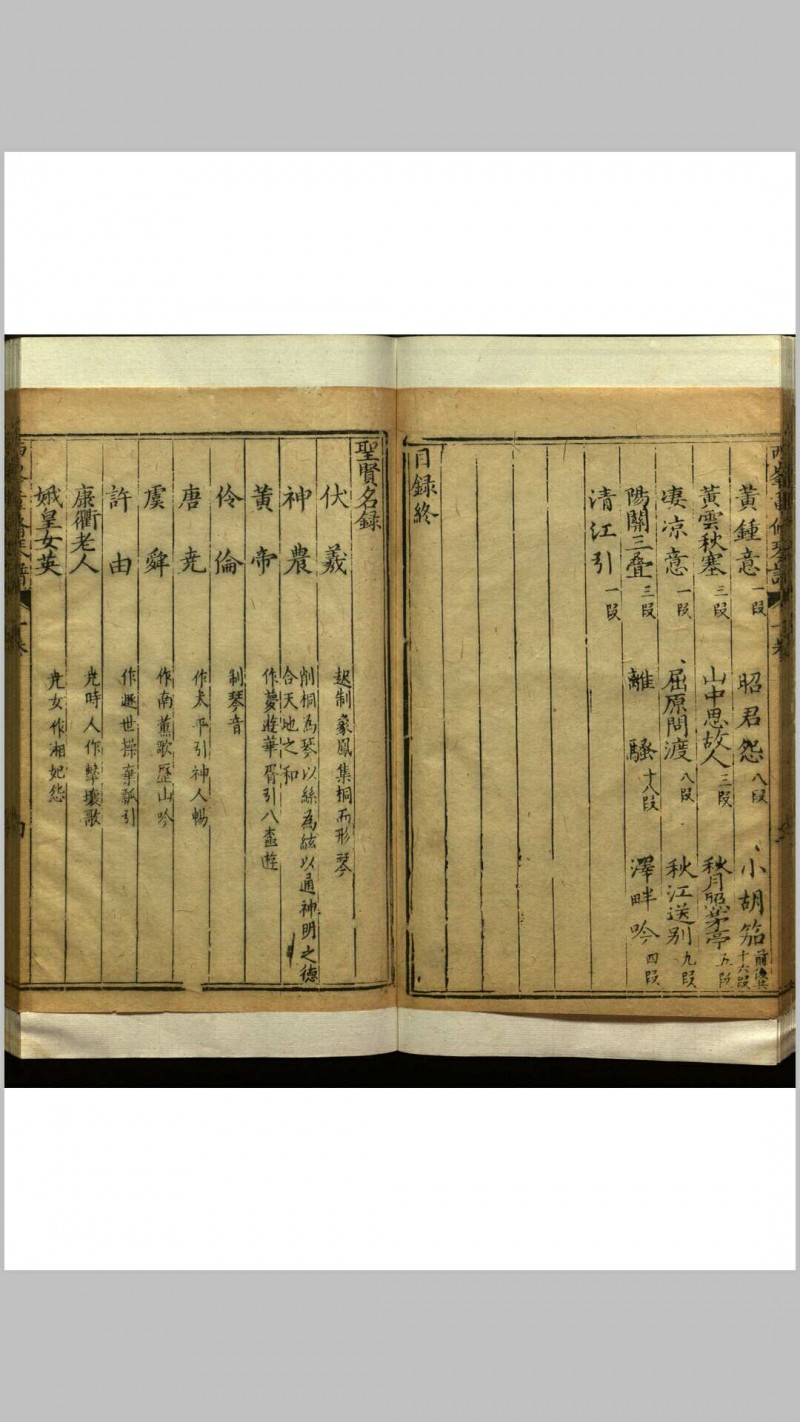 黃鍾意一段　昭君怨八段　小胡笳前後共十六段
黃雲秋塞三段　山中思故人三段　秋月照茅亭五段
凄凉意一段　屈原問渡八段　秋江送别九段
陽關三叠三段　離騷十八段　澤畔吟四段
清江引一段
目録終
聖賢名録
伏羲　起制象鳳集桐而形琴
神農　削桐為琴以絲為絃以通神明之德合天地之和
黃帝　作夢遊華胥引八盍遊
伶倫　制琴音
唐尭　作太平引神人暢
虞舜　作南薰歌歷山吟
許由　作遯世操箕瓢引
康衢老人　尭時人作擊壤歌
娥皇女英　尭女作湘妃怨